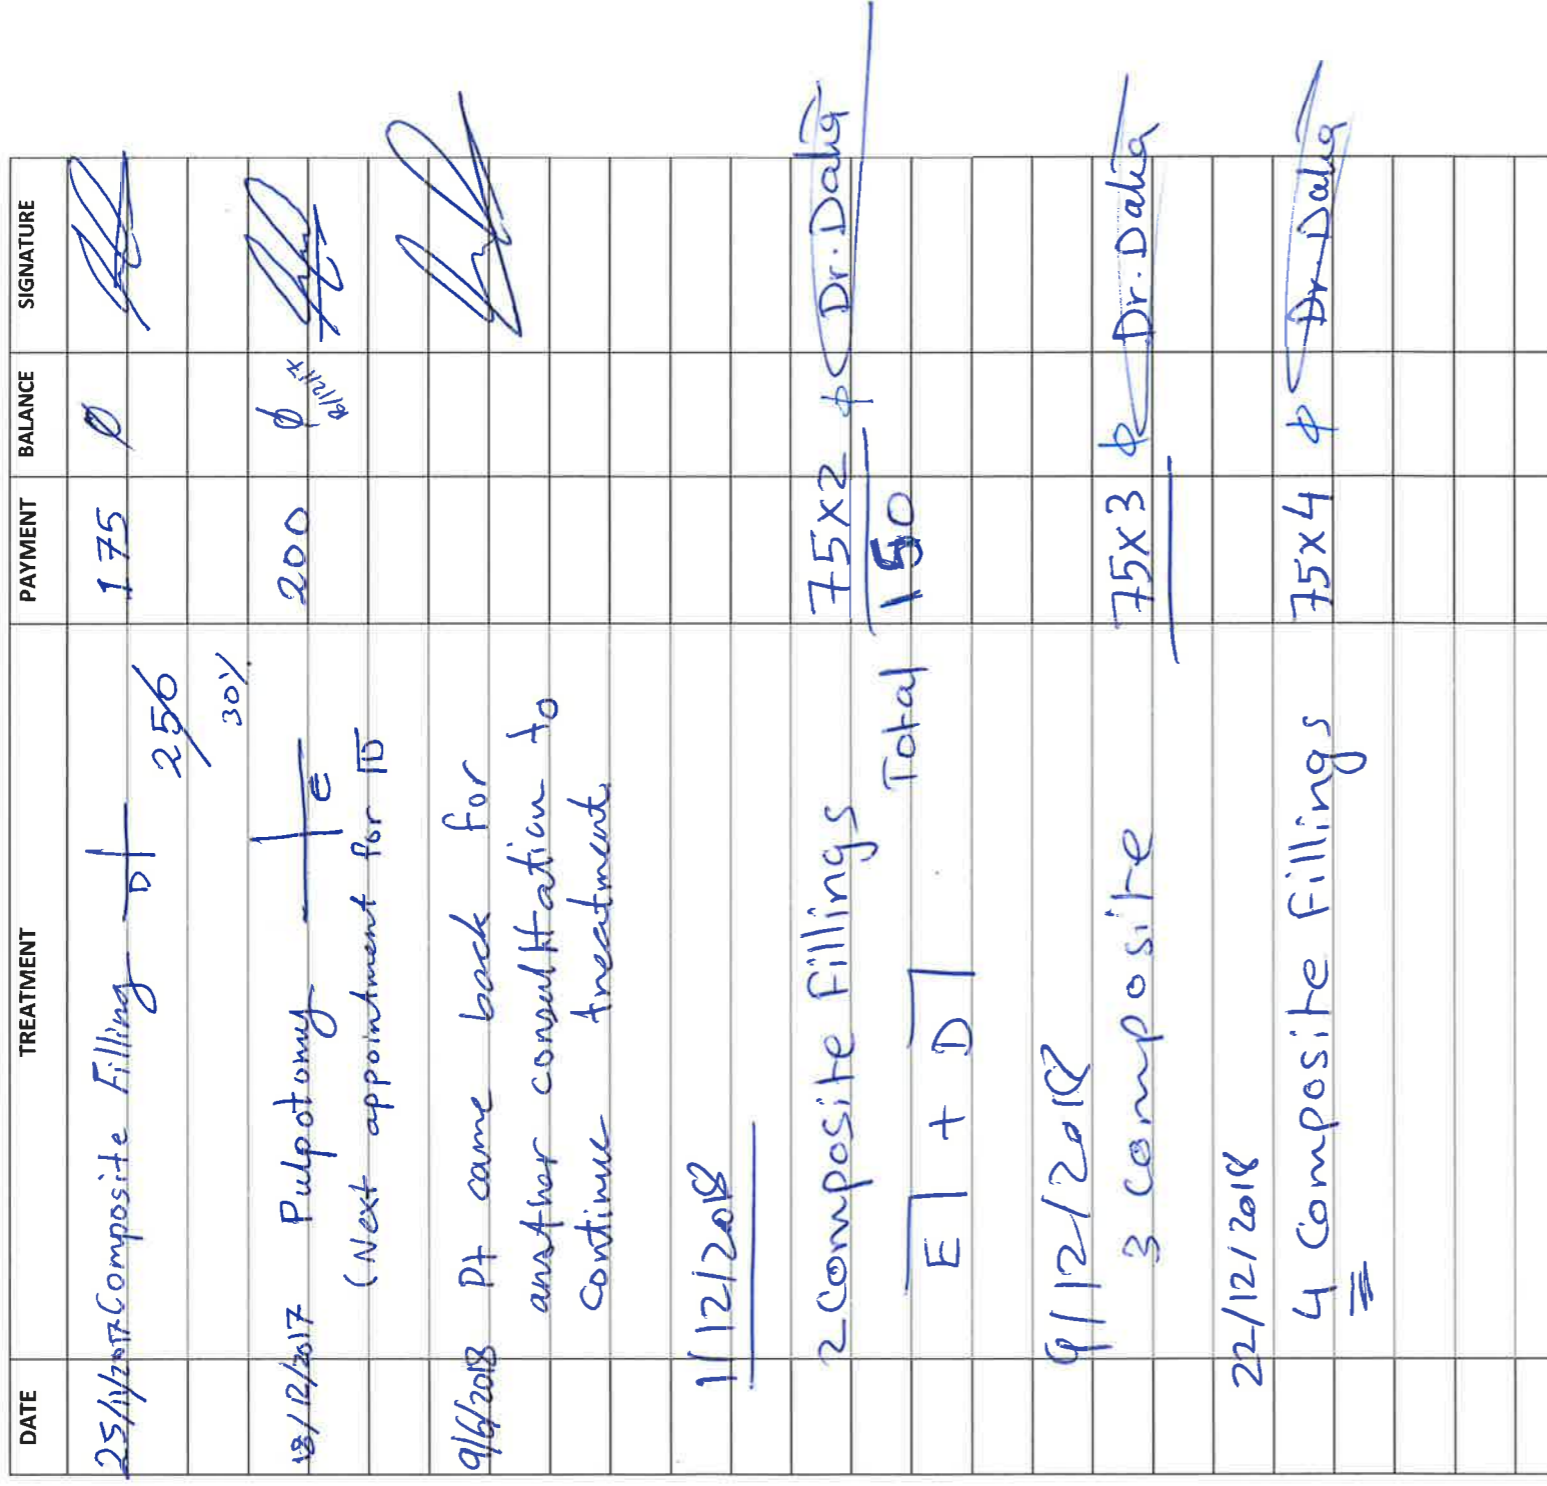 DATE TREATMENT PAYMENT BALANCE SIGNATURE
25/11/2017 Composite Filling D 175 Ø
250
30%
18/12/2017 Pulpotomy E 200 Ø
(Next appointment for D
9/6/2018 Pt came back for
another consultation to
continue treatment.
1/12/2018
2 Composite Fillings 75x2 Ø Dr. Dalia
Total 150
E + D
9/12/2018
3 Composite 75x3 Ø Dr. Dalia
22/12/2018
4 Composite Fillings 75x4 Ø Dr. Dalia